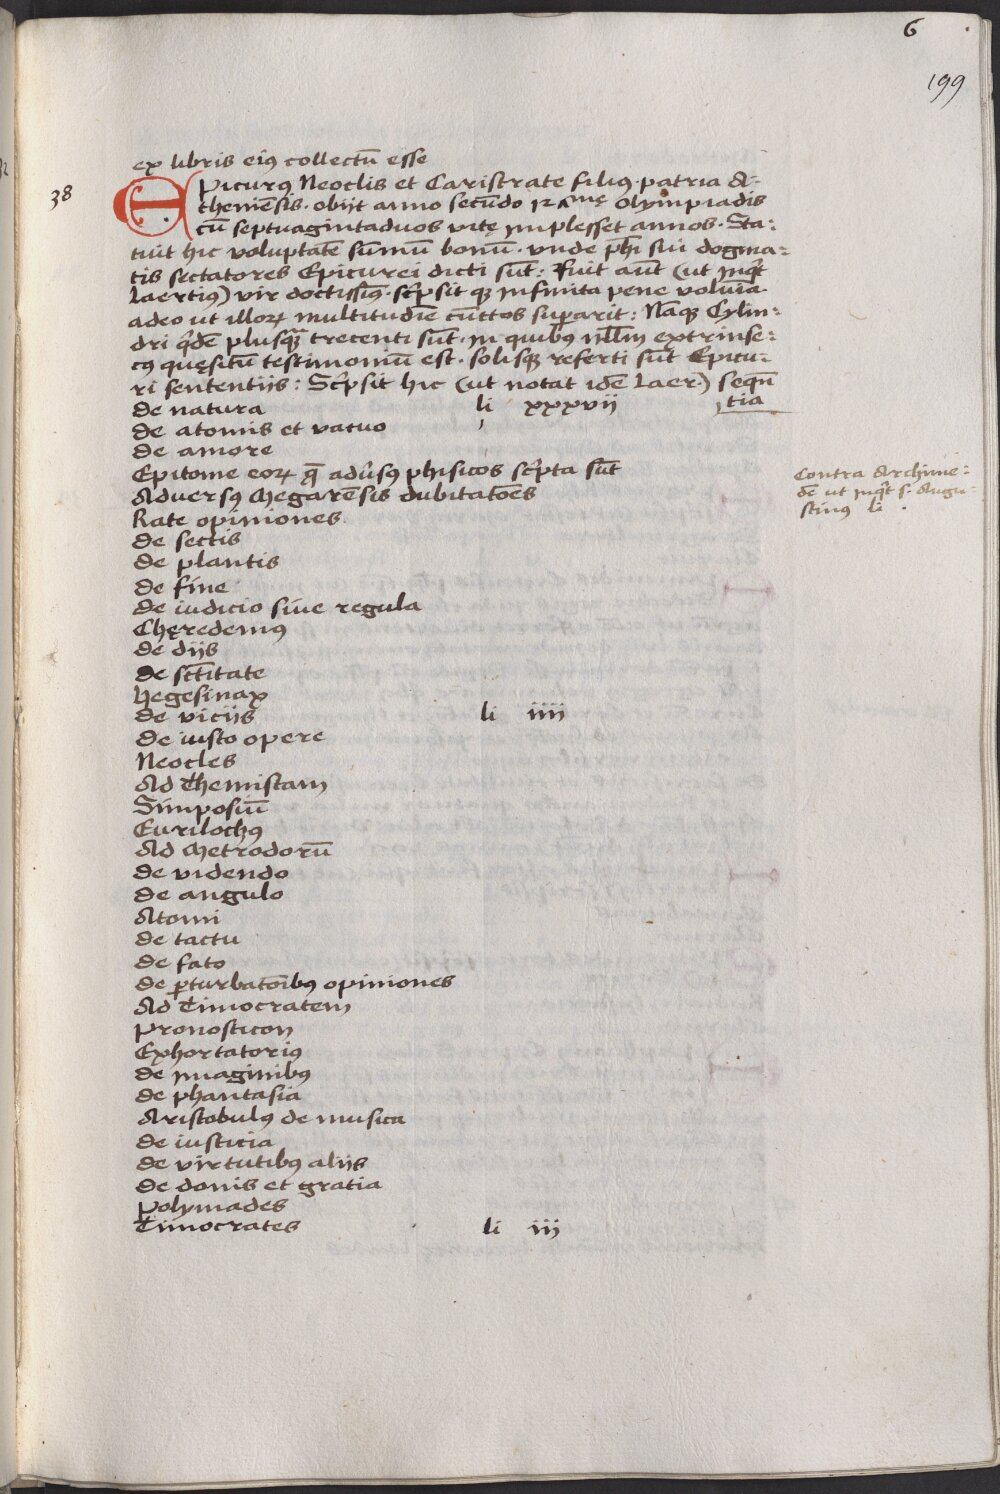 6
199
ex libris eiꝰ collectū esse
38
EPicurꝰ Neoclis et Caristrate filiꝰ · patria A-
theniēsis · obijt anno secūdo 127mę olȳmpiadis
cū septuagintaduos vitę inplesset annos · Sta:
tuit hic voluptatē sūmū bonū · vnde pħi sui dogma=
tis sectatores Epicurei dicti sūt: Fuit aūt (ut inq̄t
Laertiꝰ) vir doctissimꝰ · scͥpsit qꝫ infinita pene volūīa
adeo ut illoꝝ multitudīe cūctos supararit: Nāqꝫ Cylin:
dri q̄dē plusq̄ trecenti sūt · in quibꝰ nll̄m extrinse-
cꝰ quęsitū testimoniū est · solisqꝫ referti sūt Epicu-
ri sententijs: Scͥpsit hic (ut notat idē Laer·) seqūn
tia
de natura li xxxvij
de atomis et vacuo
de amore
Epitome eoꝝ q̄ adūsꝰ phisicos scͥpta sūt
Adversꝰ Megarēsis dubitatōes
Rate opiniones
de sectis
de plantis
de fine
de iudicio sive regula
Chęredemꝰ
de dijs
de sc̄titate
Hegesinax
de vicijs li iiij
de iusto opere
Neocles
Ad Themistam
Simposiū
Eurilochꝰ
Ad Metrodorū
de videndo
de angulo
Atomi
de tactu
de fato
de ꝑturbatōibꝰ opiniones
Ad Timocratem
Pronosticon
Exhortatoriꝰ
de imaginibꝰ
de phantasia
Aristobulꝰ de musica
de iusticia
de virtutibꝰ alijs
de donis et gratia
Polymades
Timocrates li iij
Contra Archime:
dē ut inq̄t s. Augu-
stinꝰ li .